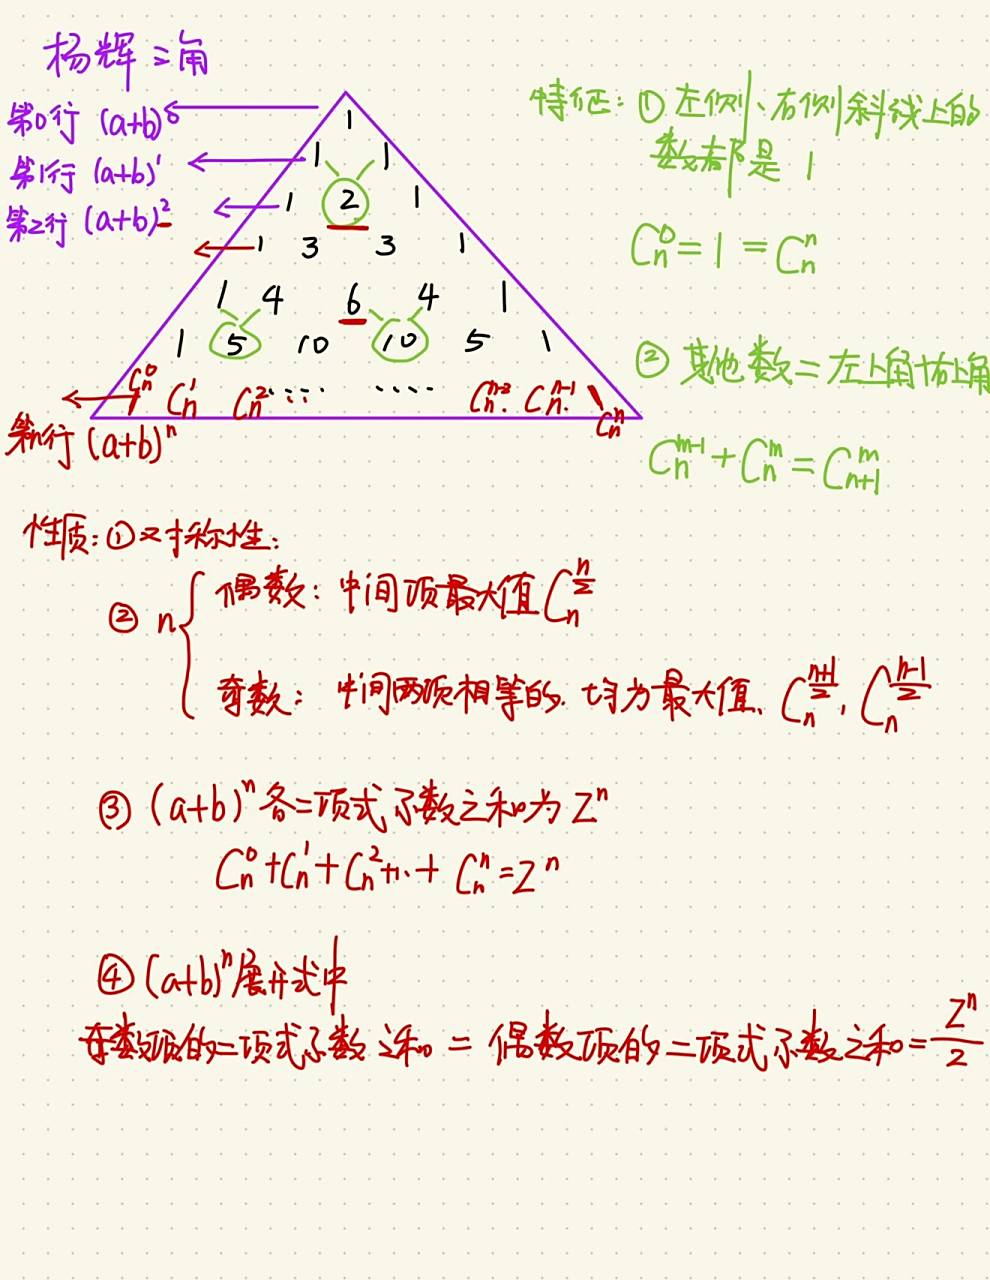 杨辉三角
第0行 (a+b)⁰
1
第1行 (a+b)¹
1 1
第2行 (a+b)²
1 2 1
1 3 3 1
1 4 6 4 1
1 5 10 10 5 1
Cₙ⁰ Cₙ¹ Cₙ² ‥‥ ‥‥ Cₙⁿ⁻² Cₙⁿ⁻¹ Cₙⁿ
第n行 (a+b)ⁿ
特征: ① 左侧、右侧斜线上的
数都是 1
Cₙ⁰ = 1 = Cₙⁿ
② 其他数 = 左上角+右上角
Cₙᵐ⁻¹ + Cₙᵐ = Cₙ₊₁ᵐ
性质: ① 对称性:
② n { 偶数: 中间项最大值 C_n^{n/2}
奇数: 中间两项相等的. 均为最大值. C_n^{(n+1)/2}, C_n^{(n-1)/2}
③ (a+b)ⁿ 各二项式系数之和为 2ⁿ
Cₙ⁰+Cₙ¹+Cₙ²+…+Cₙⁿ=2ⁿ
④ (a+b)ⁿ展开式中
奇数项的二项式系数之和 = 偶数项的二项式系数之和 = 2ⁿ/2